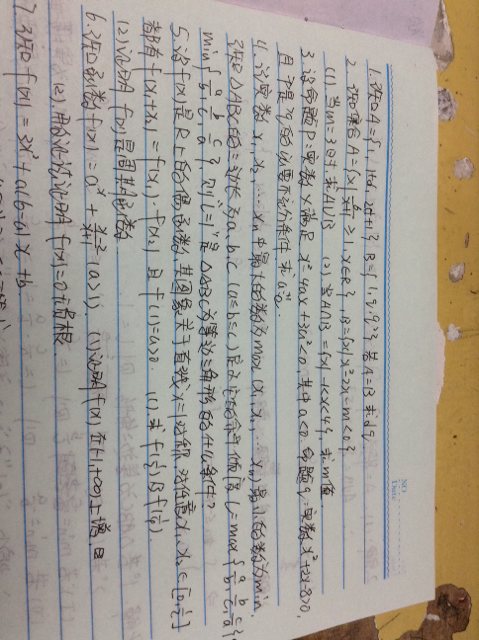 NO.
Date
1. 已知A={1, 1+d, 2d+1}, B={1, q, q²}, 若A=B 求d, q
2. 已知集合A={x|6/(x+1)≥1, x∈R}, B={x|x²-2x-m<0}
(1) 当m=3时, 求A∪B (2) 若A∩B={x|-1<x<4}, 求m值.
3. 设命题P: 实数x满足x²-4ax+3a²<0, 其中a<0, 命题q: 实数x²+2x-8>0,
且 是q的必要不充分条件 求a
4. 设实数x₁, x₂, … xₙ中最大的数为max{x₁, x₂ … xₙ} 最小的数为min,
已知△ABC的三边长为a, b, c (a≤b≤c) 定义它的倾斜度 L=max{a/b, b/c, c/a}·
min{a/b, b/c, c/a}, 则"L=1"是△ABC为等边三角形的什么条件?
5. 设f(x)是R上的偶函数, 其图象关于直线x=1对称, 对任意x₁, x₂∈[0, 1/2]
都有f(x₁+x₂)=f(x₁)·f(x₂) 且f(1)=a>0. (1) 求f(1/2)及f(1/4)
(2) 证明f(x)是周期函数
6. 已知函数f(x)=aˣ+(x-2)/(x+1) (a>1). (1) 证明f(x)在(-1, +∞)上增函
(2) 用反证法证明f(x)=0没有负根
7. 已知f(x)=3x²+a(6-a)x+b